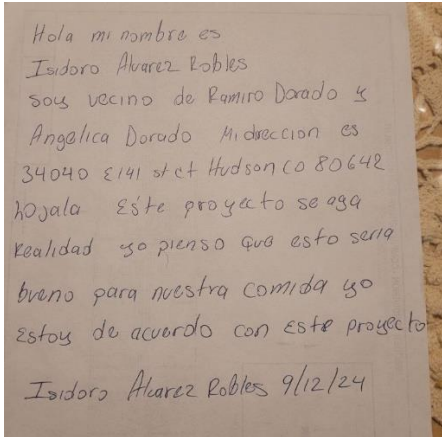 Hola mi nombre es
Isidoro Alvarez Robles
soy vecino de Ramiro Dorado y
Angelica Dorado Mi direccion es
34040 E 141 st ct Hudson CO 80642
hojala Este proyecto se aga
Realidad yo pienso que esto seria
bueno para nuestra comida yo
Estoy de acuerdo con Este proyecto
Isidoro Alvarez Robles 9/12/24